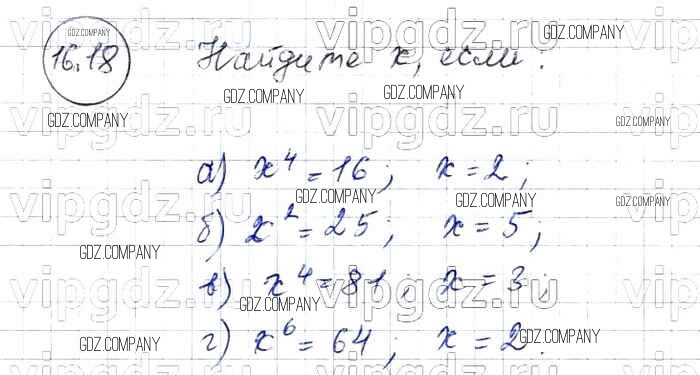 16.18 Найдите x, если:
а) x⁴ = 16; x = 2;
б) x² = 25; x = 5;
в) x⁴ = 81; x = 3;
г) x⁶ = 64; x = 2.
vipgdz.ru
GDZ.COMPANY